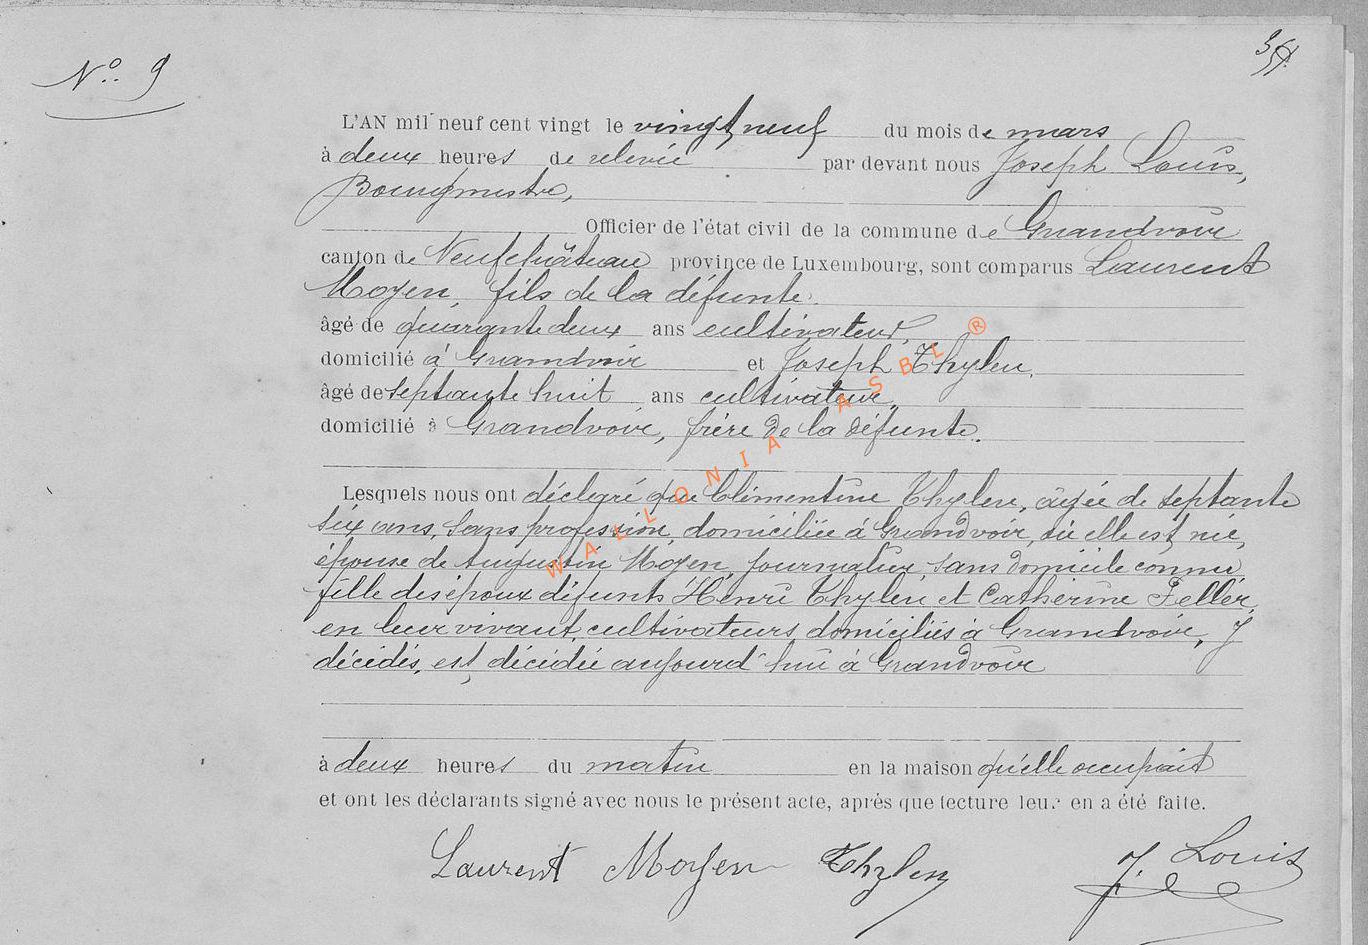 N° 9
L'AN mil neuf cent vingt le vingt neuf du mois de mars
à deux heures de relevée par devant nous Joseph Louis,
Bourgmestre,
Officier de l'état civil de la commune de Grandvoir
canton de Neufchâteau province de Luxembourg, sont comparus Laurent
Moyen, fils de la défunte.
âgé de quarante deux ans cultivateur,
domicilié à Grandvoir et Joseph Thylen,
âgé de septante huit ans cultivateur,
domicilié à Grandvoir, frère de la défunte.
Lesquels nous ont déclaré que Clémentine Thylen, âgée de septante
six ans, sans profession, domiciliée à Grandvoir, où elle est née,
épouse de Augustin Moyen, journalier sans domicile connu
fille des époux défunts Henri Thylen et Catherine Feller,
en leur vivant, cultivateurs domiciliés à Grandvoir, y
décédés, est décédée aujourd'hui à Grandvoir
à deux heures du matin en la maison qu'elle occupait
et ont les déclarants signé avec nous le présent acte, après que lecture leur en a été faite.
Laurent Moyen Thylen J. Louis
WALLONIA ASBL ®